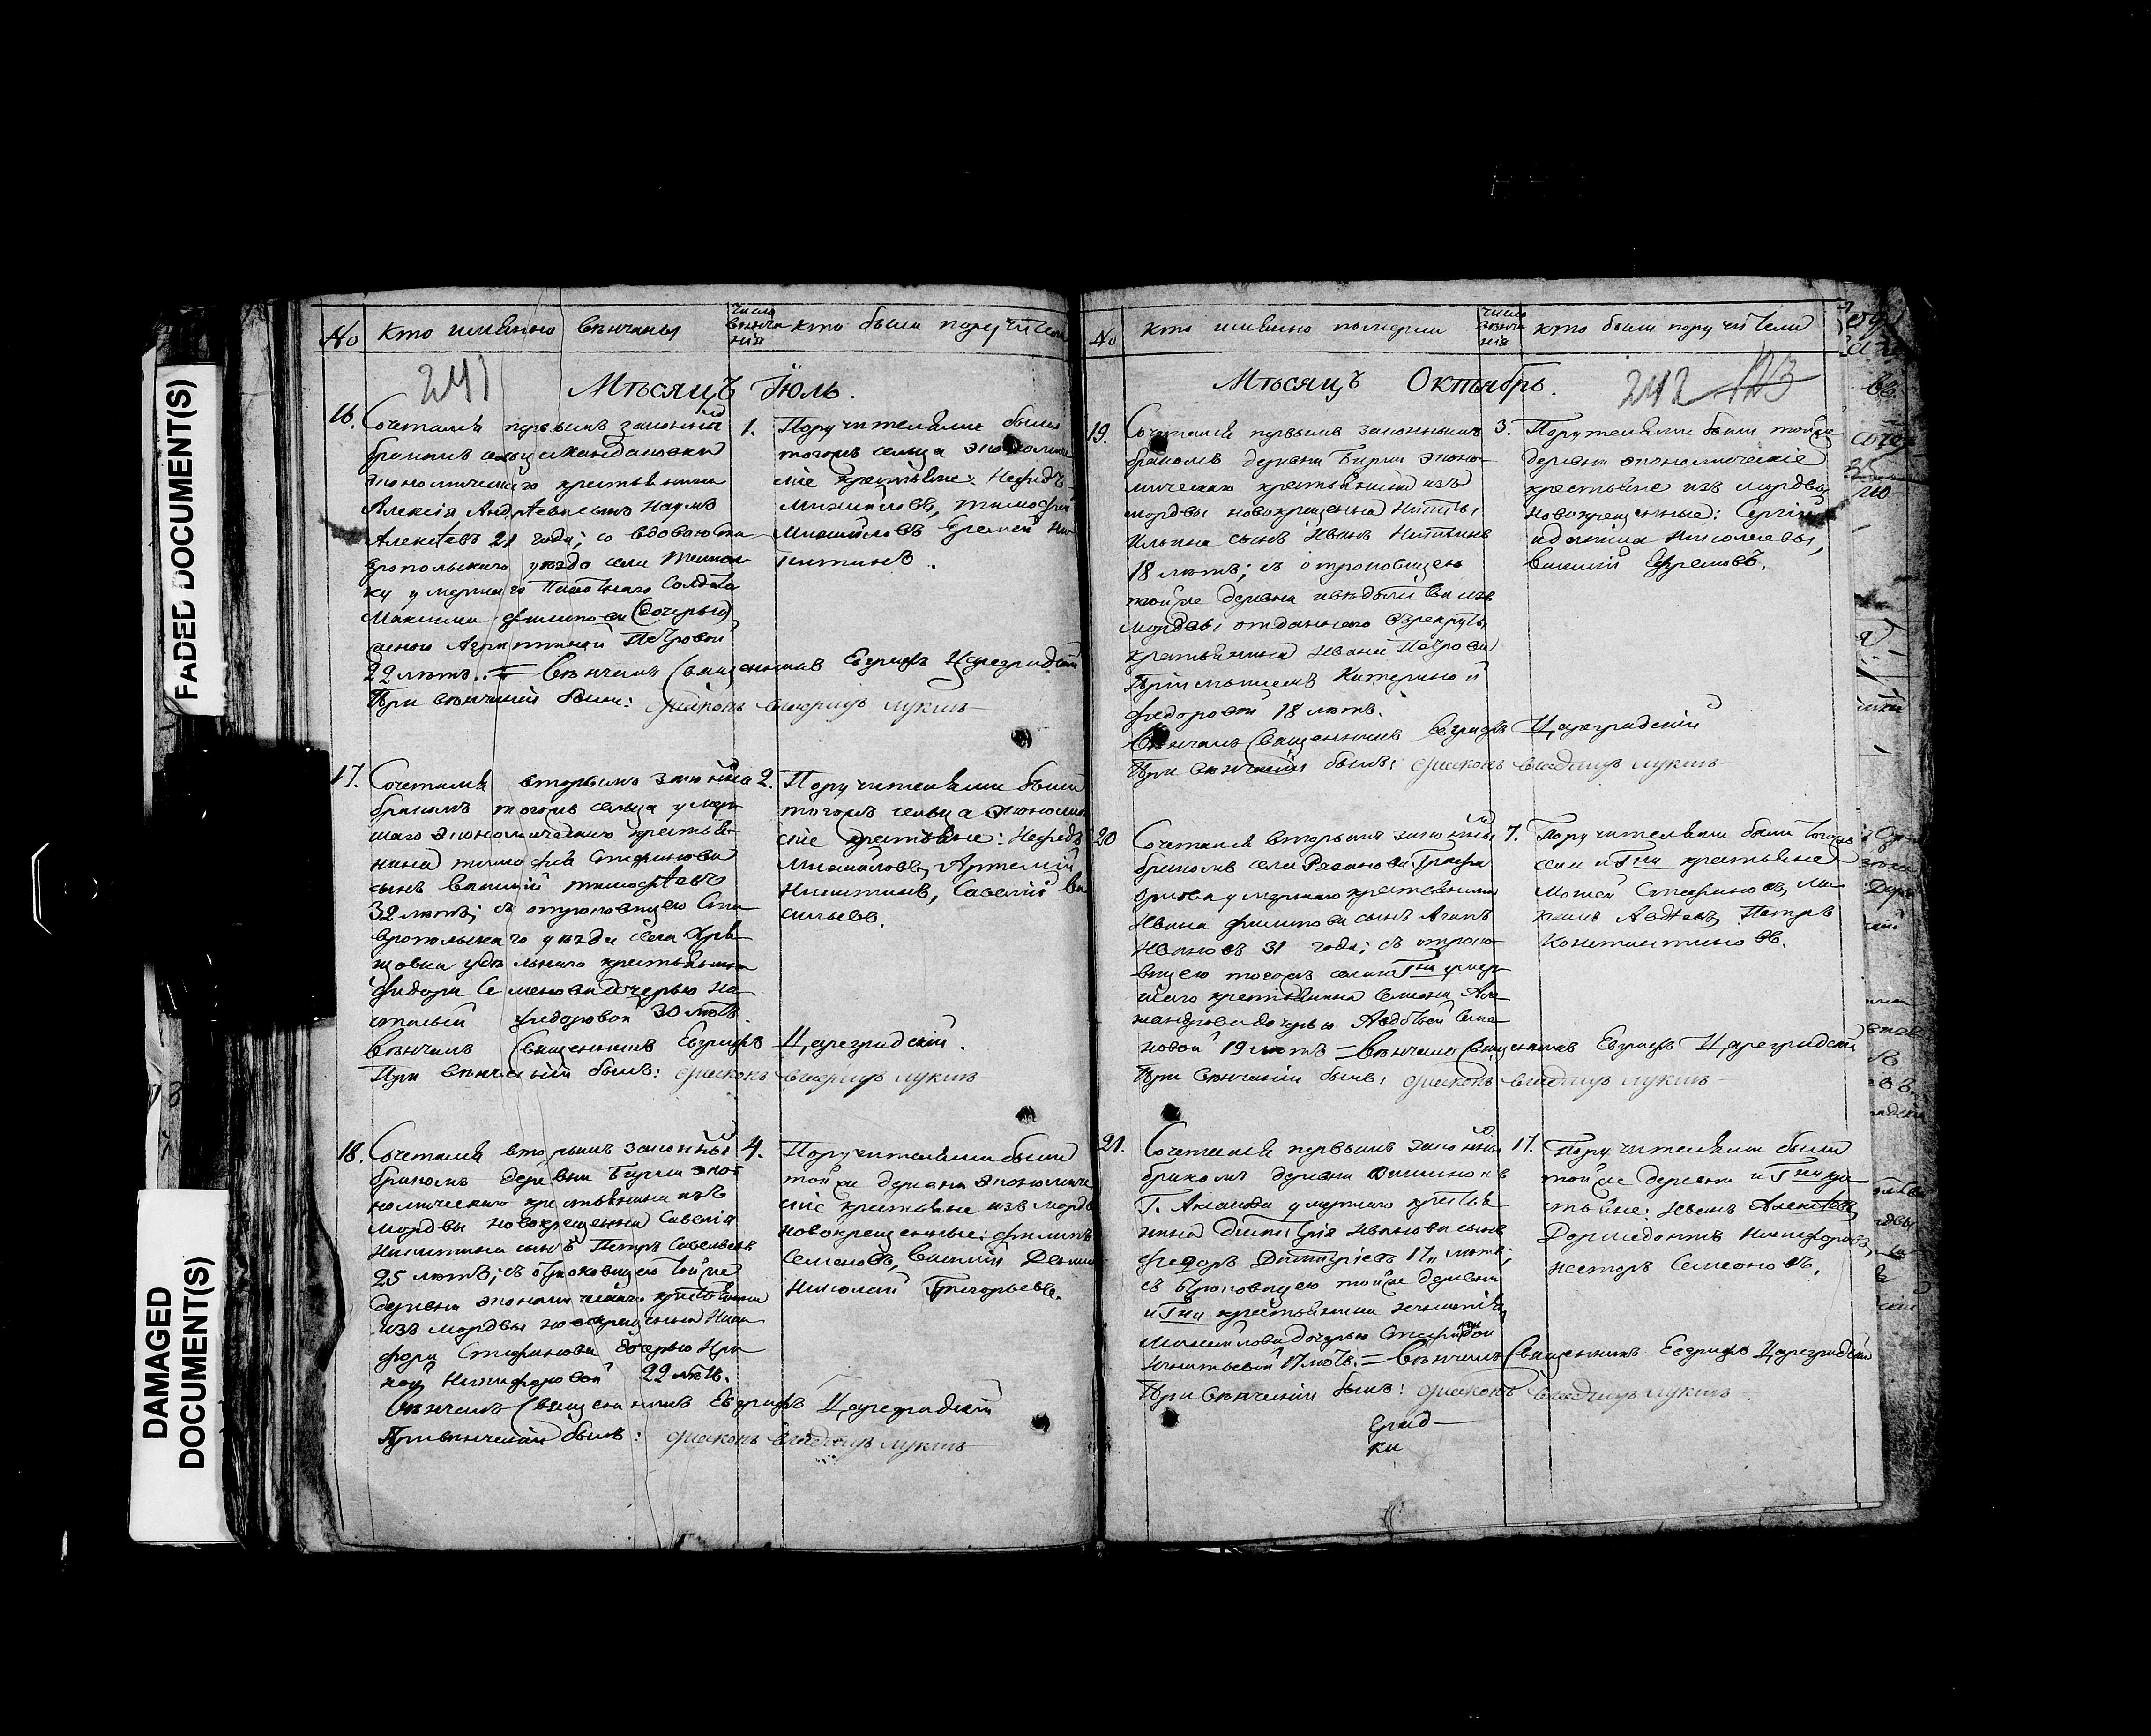 FADED DOCUMENT(S)
DAMAGED
DOCUMENT(S)
№ кто имянно вѣнчаны
число
вѣнча
нія
кто были поручители
241
Мѣсяцъ Іюль.
16. Сочетался первымъ законны
бракомъ сельца
экономическаго крестьянина
Алексія Андреева сынъ Наумъ
Алексѣевъ 21 года; со вдовою Ста
вропольскаго уѣзда села
умершаго Солдата
Максима Филипова (дочерью)
женою Агрипиной Петровой
22 лѣтъ. = Вѣнчалъ Священникъ Евграфъ Цареградскій
При вѣнчаніи были: Діяконъ Владиміръ Лукинъ
1. Поручителями были
тогожъ сельца экономиче
скіе крестьяне: Нефедъ
Михайловъ, Тимофей
Михайловъ Еремей Ни
китинъ.
17. Сочетался вторымъ законны
бракомъ тогожъ сельца умер
шаго экономическаго крестья
нина Тимофея Стефанова
сынъ Василій Тимофѣевъ
32 лѣтъ; съ отроковицею Ста
вропольскаго уѣзда села Хря
щовки удѣльнаго крестьянина
Федора Семенова дочерью На
стасьей Федоровой 30 лѣтъ.
Вѣнчалъ Священникъ Евграфъ Цареградскій.
При вѣнчаніи былъ: Діяконъ Владиміръ Лукинъ
2. Поручителями были
тогожъ сельца экономиче
скіе крестьяне: Нефедъ
Михайловъ, Артемій
Никитинъ, Савелій Ва
сильевъ.
18. Сочетался вторымъ законны
бракомъ деревни Бирли эко
номическаго крестьянина изъ
мордвы новокрещенна Савелія
Никитина сынъ Петръ Савельевъ
25 лѣтъ; съ отроковицею тойже
деревни экономическаго крестьянина
изъ мордвы новокрещенна Ники
фора Стефанова дочерью Ири
ной Никифоровой 22 лѣтъ.
Вѣнчалъ Священникъ Евграфъ Цареградскій
При вѣнчаніи былъ: Діяконъ Владиміръ Лукинъ
4. Поручителями были
тойже деревни экономиче
скіе крестьяне изъ мордв
новокрещенные: Филипъ
Семеновъ, Василій
Николай Григорьевъ.
№ кто имянно померли
число
вѣнча
нія
кто были поручители
Мѣсяцъ Октябрь.
242 123
19. Сочетался первымъ законнымъ
бракомъ деревни Бирли эконо
мическаго крестьянина изъ
мордвы новокрещенна Никиты
Ильина сынъ Иванъ Никитинъ
18 лѣтъ; съ отроковицею
тойже деревни изъ
мордвы отданнаго въ рекруты
крестьянина Ивана Петрова
Катериной
Федоровой 18 лѣтъ.
Вѣнчалъ Священникъ Евграфъ Цареградскій
При вѣнчаніи былъ: Діяконъ Владиміръ Лукинъ
3. Поручителями были тойже
деревни экономическіе
крестьяне изъ мордвы
новокрещенные: Сергій
Николаевы,
Василій Ефремовъ.
20 Сочетался вторымъ законны
бракомъ села Рязанова Графа
Орлова умершаго крестьянина
Ивана Филипова сынъ Агапъ
Ивановъ 31 года; съ отроко
вицею тогожъ села и Гна умер
шаго крестьянина Семена Але
ксандрова дочерью Авдотьей Семе
новой 19 лѣтъ = Вѣнчалъ Священникъ Евграфъ Цареградскій
При вѣнчаніи былъ: Діяконъ Владиміръ Лукинъ
7. Поручителями были тогожъ
села и Гна крестьяне
Мосей Стефановъ, Ма
ксимъ Авдѣевъ, Петръ
Константиновъ.
21. Сочетался первымъ законны
бракомъ деревни
Г. умершаго крестья
нина Димитрія Иванова сынъ
Федоръ Димитріевъ 17 лѣтъ;
съ отроковицею тойже деревни
и Гна крестьянина Игнатія
Михайлова дочерью Стефанидой
Игнатьевой 17 лѣтъ. = Вѣнчалъ Священникъ Евграфъ Цареградскій
При вѣнчаніи былъ: Діяконъ Владиміръ Лукинъ
17. Поручителями были
тойже деревни и Гна кре
стьяне: Иванъ Алексѣевъ
Дормедонтъ Никифоровъ,
Несторъ Семеоновъ.